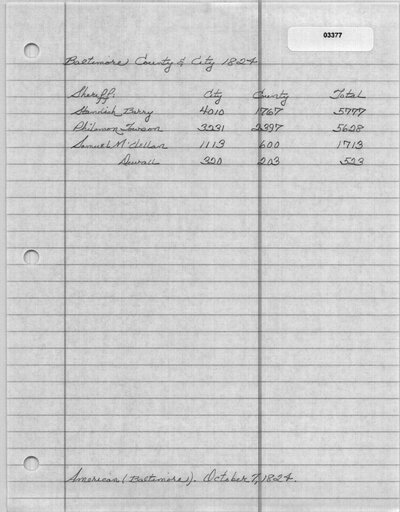 03377
Baltimore County & City 1824
Sheriff City County Total
Standish Barry 4010 1767 5777
Philemon Towson 3231 2397 5628
Samuel M'Clellan 1113 600 1713
Duvall 320 203 523
American (Baltimore). October 7, 1824.